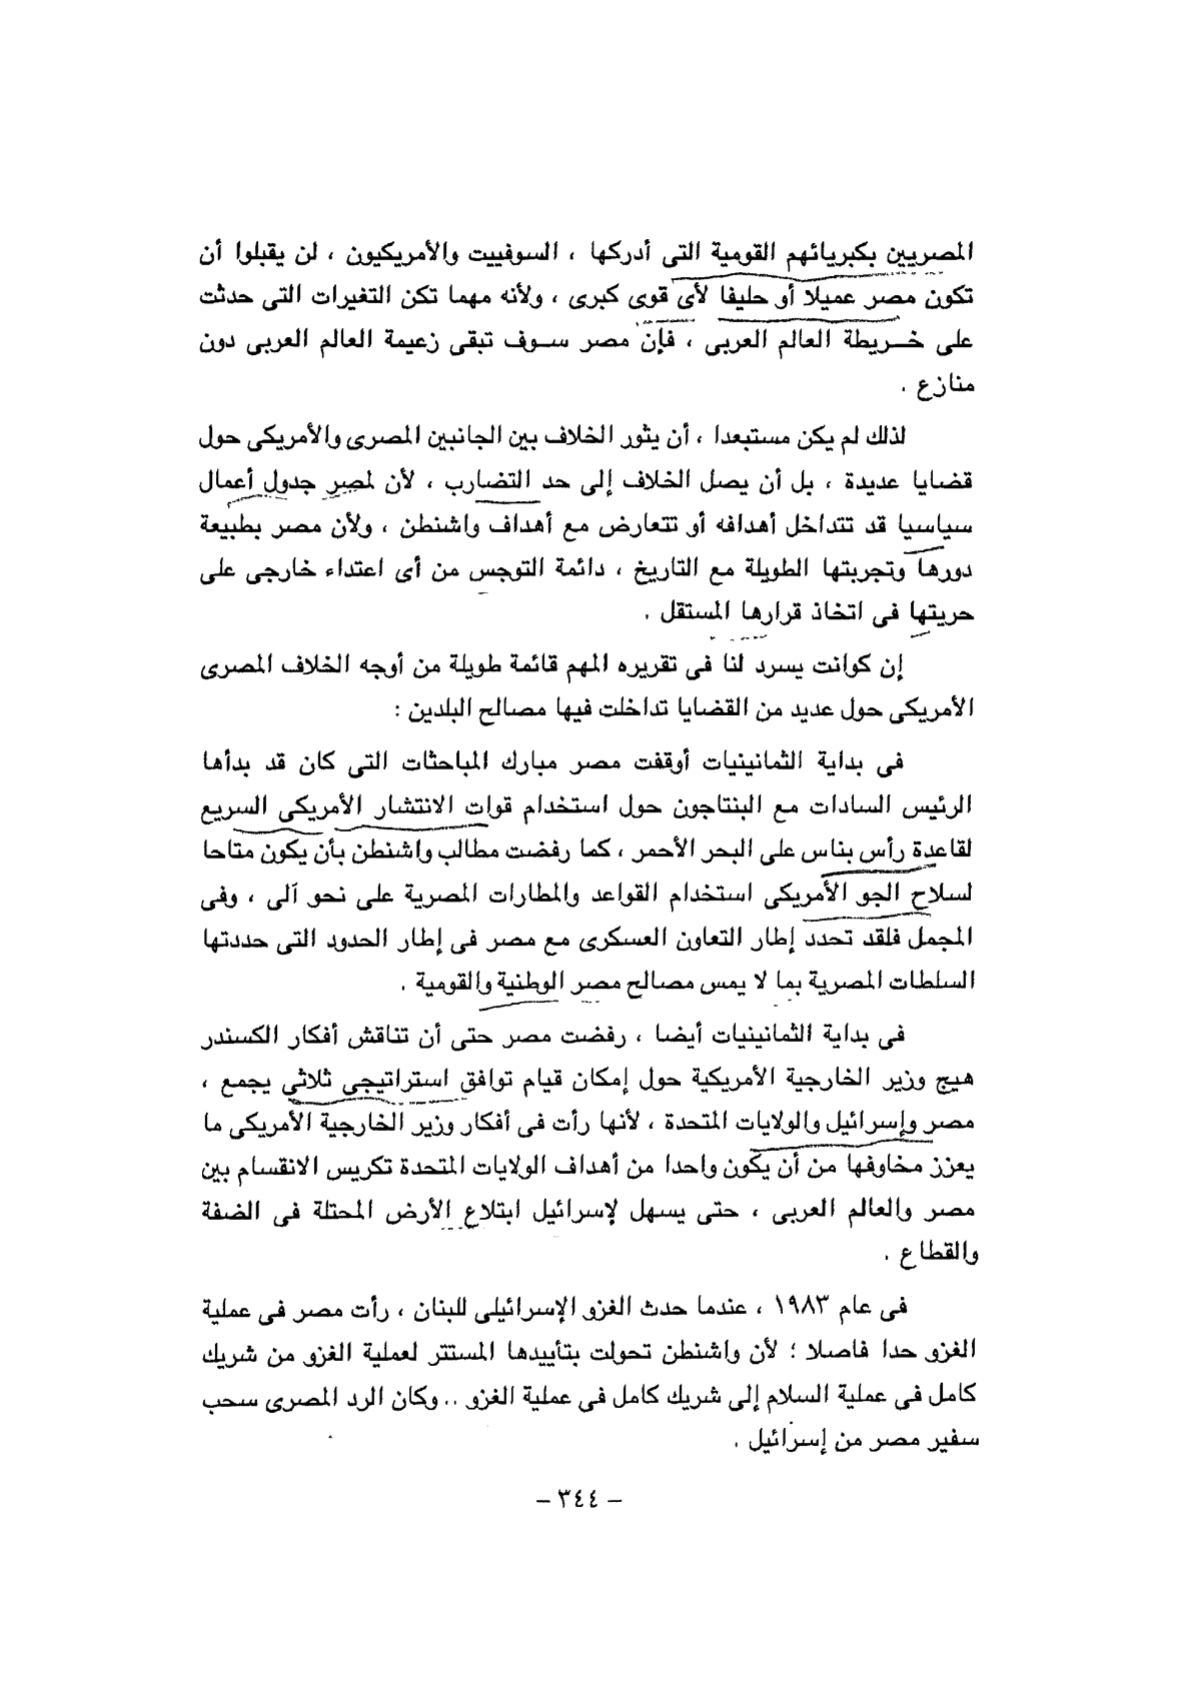 المصريين بكبريائهم القومية التى أدركها ، السوفييت والأمريكيون ، لن يقبلوا أن
تكون مصر عميلا أو حليفا لأى قوى كبرى ، ولأنه مهما تكن التغيرات التى حدثت
على خــريطة العالم العربى ، فإن مصر ســوف تبقى زعيمة العالم العربى دون
منازع .
لذلك لم يكن مستبعدا ، أن يثور الخلاف بين الجانبين المصرى والأمريكى حول
قضايا عديدة ، بل أن يصل الخلاف إلى حد التضارب ، لأن لمصر جدول أعمال
سياسيا قد تتداخل أهدافه أو تتعارض مع أهداف واشنطن ، ولأن مصر بطبيعة
دورها وتجربتها الطويلة مع التاريخ ، دائمة التوجس من أى اعتداء خارجى على
حريتها فى اتخاذ قرارها المستقل .
إن كوانت يسرد لنا فى تقريره المهم قائمة طويلة من أوجه الخلاف المصرى
الأمريكى حول عديد من القضايا تداخلت فيها مصالح البلدين :
فى بداية الثمانينيات أوقفت مصر مبارك المباحثات التى كان قد بدأها
الرئيس السادات مع البنتاجون حول استخدام قوات الانتشار الأمريكى السريع
لقاعدة رأس بناس على البحر الأحمر ، كما رفضت مطالب واشنطن بأن يكون متاحا
لسلاح الجو الأمريكى استخدام القواعد والمطارات المصرية على نحو آلى ، وفى
المجمل فلقد تحدد إطار التعاون العسكرى مع مصر فى إطار الحدود التى حددتها
السلطات المصرية بما لا يمس مصالح مصر الوطنية والقومية .
فى بداية الثمانينيات أيضا ، رفضت مصر حتى أن تناقش أفكار الكسندر
هيج وزير الخارجية الأمريكية حول إمكان قيام توافق استراتيجى ثلاثى يجمع ،
مصر وإسرائيل والولايات المتحدة ، لأنها رأت فى أفكار وزير الخارجية الأمريكى ما
يعزز مخاوفها من أن يكون واحدا من أهداف الولايات المتحدة تكريس الانقسام بين
مصر والعالم العربى ، حتى يسهل لإسرائيل ابتلاع الأرض المحتلة فى الضفة
والقطاع .
فى عام ١٩٨٣ ، عندما حدث الغزو الإسرائيلى للبنان ، رأت مصر فى عملية
الغزو حدا فاصلا ؛ لأن واشنطن تحولت بتأييدها المستتر لعملية الغزو من شريك
كامل فى عملية السلام إلى شريك كامل فى عملية الغزو .. وكان الرد المصرى سحب
سفير مصر من إسرائيل .
– ٣٤٤ –